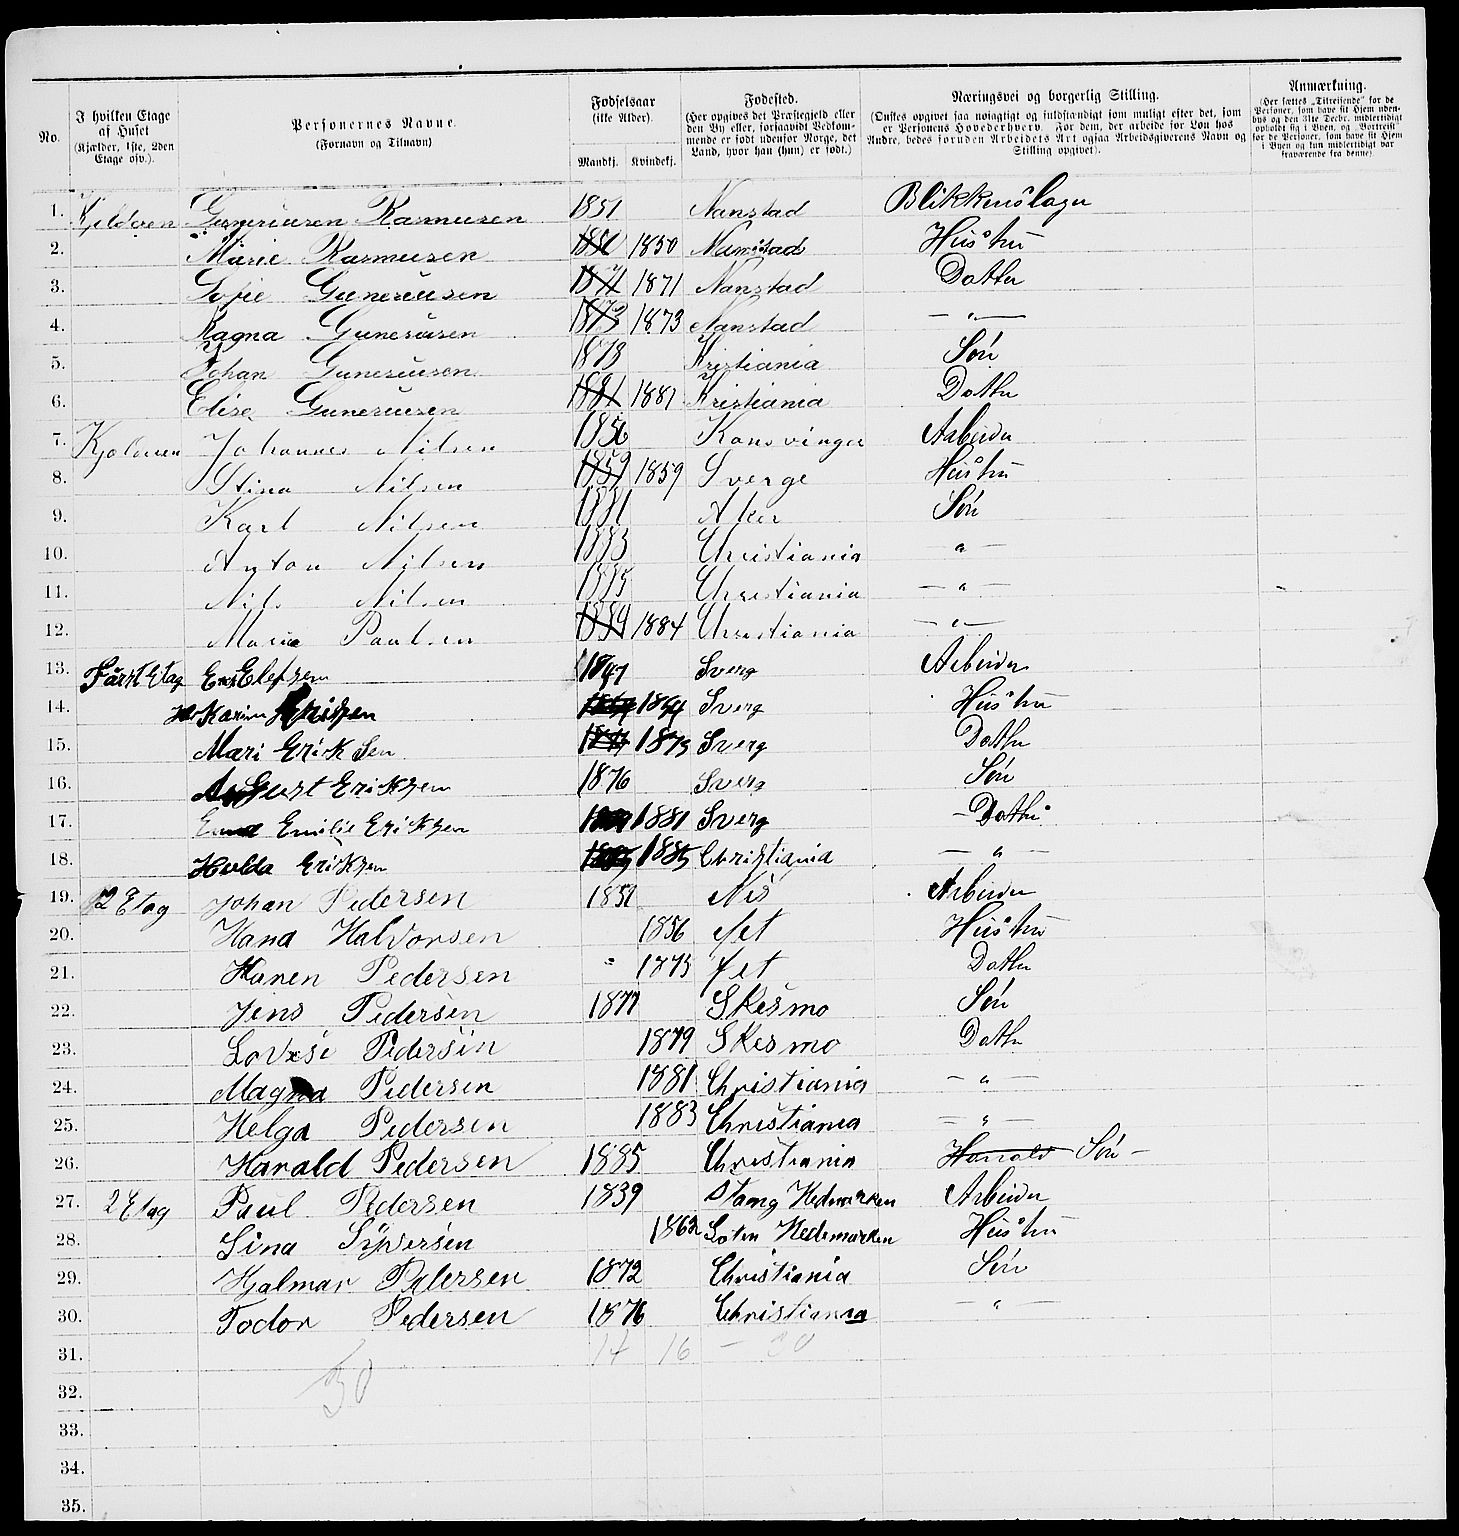 No. I hvilken Etage af Huset (Kjælder, 1ste, 2den Etage osv.). Personernes Navne. (Fornavn og Tilnavn) Fødselsaar (ikke Alder). Mandkj. Kvindekj. Fødested. (Her opgives det Præstegjeld eller den By eller, forsaavidt Vedkommende er født udenfor Norge, det Land, hvor han (hun) er født.) Næringsvei og borgerlig Stilling. (Ønskes opgivet saa nøiagtigt og fuldstændigt som muligt efter det, som er Personens Hovederhverv. For dem, der arbeide for Løn hos Andre, bedes foruden Arbeidets Art ogsaa Arbeidsgiverens Navn og Stilling opgivet). Anmærkning. (Her sættes „Tilreisende" for de Personer, som have sit Hjem udenbys og den 31te Decbr. midlertidigt opholdt sig i Byen, og „Bortreist" for de Personer, som have sit Hjem i Byen og kun midlertidigt var fraværende fra denne)
1. Kjelderen Guneriusen Rasmusen 1851 Nanstad Blikkenslager
2. Marie Rasmusen 1850 1850 Nanstad Hustru
3. Sofie Guneriusen 1871 1871 Nanstad Datter
4. Ragna Guneriusen 1873 1873 Nanstad — " —
5. Johan Guneriusen 1878 Kristiania Søn
6. Elise Guneriusen 1881 1881 Kristiania Datter
7. Kjelderen Johannes Nilsen 1856 Konsvinger Arbeider
8. Stina Nilsen 1859 1859 Sverge Hustru
9. Karl Nilsen 1881 Aker Søn
10. Anton Nilsen 1883 Christiania — " —
11. Nils Nilsen 1885 Christiania — " —
12. Maria Paulsen 1884 1884 Christiania — " —
13. Først Etag 1847 Sverg Arbeider
14. Karin 1844 Sverg Hustru
15. Mari Eriksen 1873 Sverg Datter
16. August Eriksen 1876 Sverg Søn
17. Emilie Eriksen 1881 Sverg Datter
18. Hulda Eriksen 1885 Christiania — " —
19. 2 Etag Johan Pedersen 1851 Nes Arbeider
20. Hana Halvorsen 1856 fet Hustru
21. Karen Pedersen 1875 fet Datter
22. Jens Pedersen 1877 Skesmo Søn
23. Lovise Pedersen 1879 Skesmo Datter
24. Magna Pedersen 1881 Christiania — " —
25. Helga Pedersen 1883 Christiania — " —
26. Harald Pedersen 1885 Christiania Harald Søn —
27. 2 Etag Paul Pedersen 1839 Stang Hedmarken Arbeider
28. Lina Syversen 1862 Løten Hedemarken Hustru
29. Hjalmar Pedersen 1872 Christiania Søn
30. Todor Pedersen 1876 Christiania — " —
31. 14 16 — 30
32. 30
33.
34.
35.